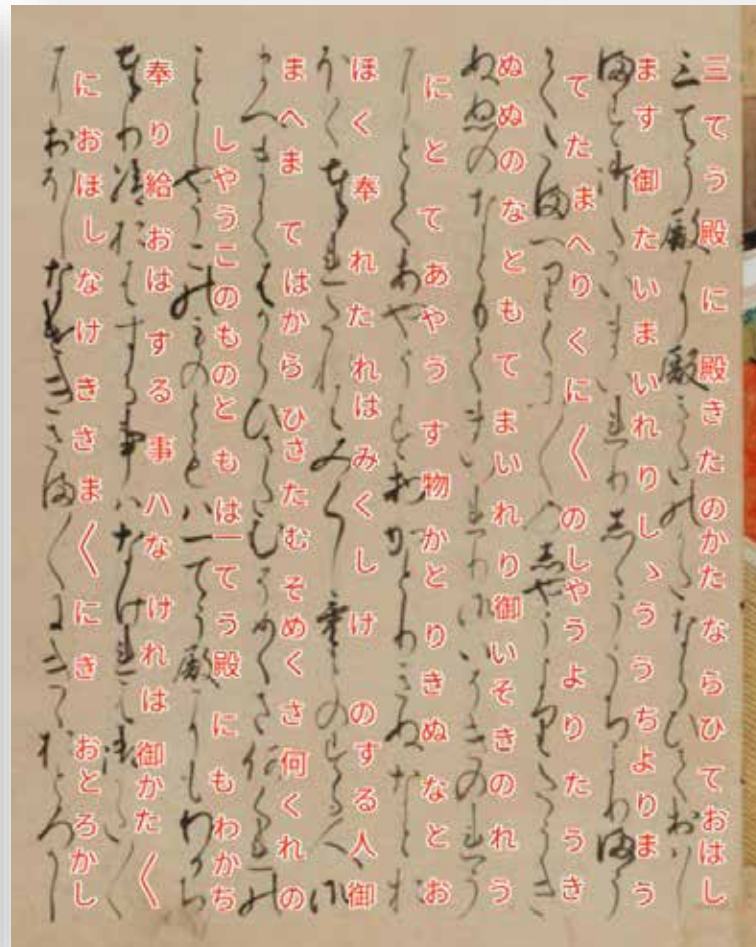 三てう殿に殿きたのかたならひておはし
ます御たいまいれりしゝううちよりまう
てたまへりくに〱のしやうよりたうき
ぬぬのなともてまいれり御いそきのれう
にとてあやうす物かとりきぬなとお
ほく奉れたれはみくしけのする人御
まへまてはからひさたむそめくさ何くれの
しやうこのものともは一てう殿にもわかち
奉り給おはする事ハなけれは御かた〱
におほしなけきさま〱にきおとろかし